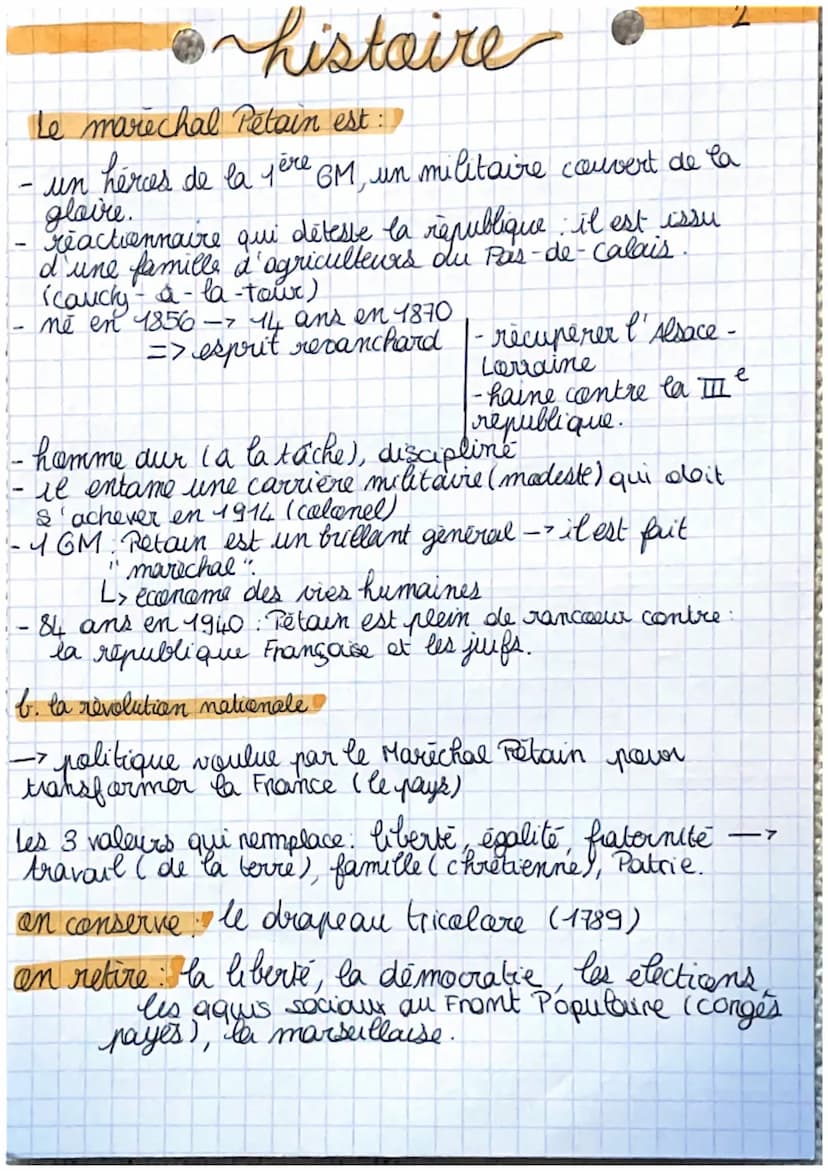 2
histoire
Le maréchal Pétain est :
- un héros de la 1ère GM, un militaire couvert de la
gloire.
- réactionnaire qui déteste la république : il est issu
d'une famille d'agriculteurs du Pas-de-Calais.
(cauchy-à-la-tour)
- né en 1856 -> 14 ans en 1870
=> esprit revanchard
- récupérer l'Alsace-
Lorraine
- haine contre la IIIe
république.
- homme dur (a la tâche), discipliné
- il entame une carrière militaire (modeste) qui doit
s'achever en 1914 (colonel)
- 1 GM : Pétain est un brillant général -> il est fait
"maréchal".
L> économe des vies humaines
- 84 ans en 1940 : Pétain est plein de rancoeur contre :
la république Française et les juifs.
b. la révolution nationale
-> politique voulue par le Maréchal Pétain pour
transformer la France (le pays)
Les 3 valeurs qui remmplace : liberté, égalité, fraternité ->
travail (de la terre), famille (chrétienne), Patrie.
on conserve : le drapeau tricolore (1789)
on retire : la liberté, la démocratie, les elections,
les aquis sociaux du Front Populaire (congés
payés), la marseillaise.